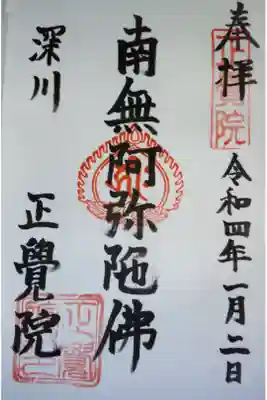 奉拝
令和四年一月二日
南無阿弥陀佛
深川
正覺院